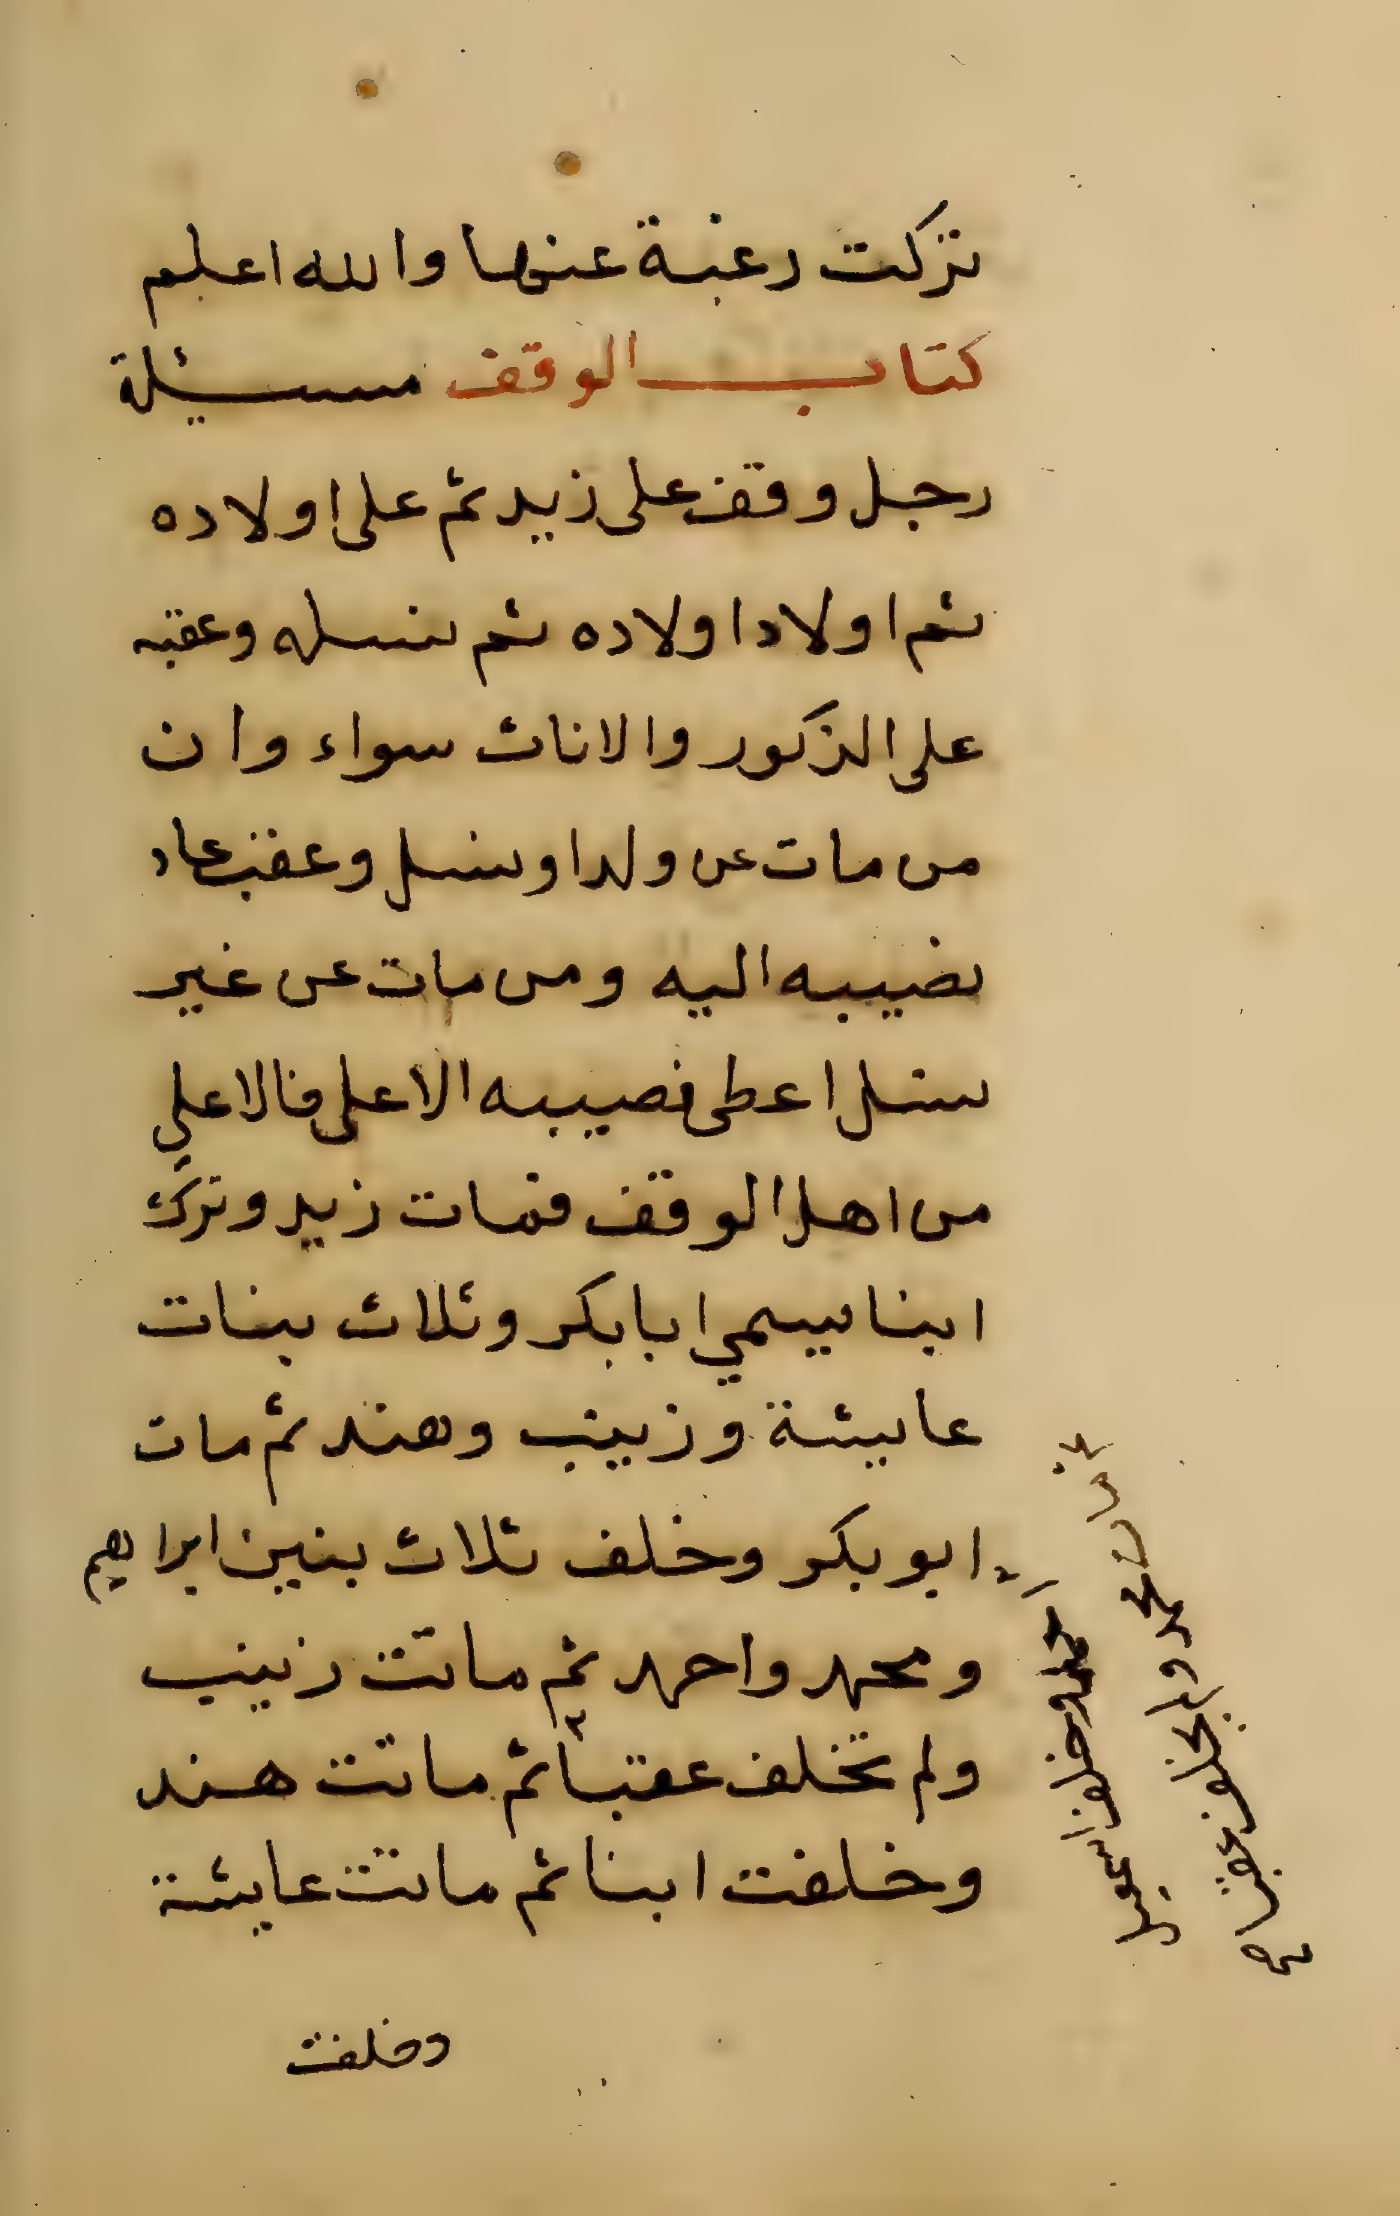 تركت رغبة عنها والله اعلم
كتاب الوقف مسيئلة
رجل وقف على زيد ثم على اولاده
ثم اولاد اولاده ثم نسله وعقبه
على الذكور والاناث سواء وان
من مات عن ولد او نسل وعقب عاد
نصيبه اليه ومن مات عن غير
نسل اعطى نصيبه الاعلى فالاعلي
من اهل الوقف فمات زيد وترك
ابنا يسمي ابا بكر وثلاث بنات
عايشة وزينب وهند ثم مات
ابو بكر وخلف ثلاث بنين ابراهيم
ومحمد واحمد ثم ماتت زينب
ولم تخلف عقبا ثم ماتت هند
وخلفت ابنا ثم ماتت عايئشة
وخلفت
ثم مات محمد ولم يخلف عقبا
احمد وخلف